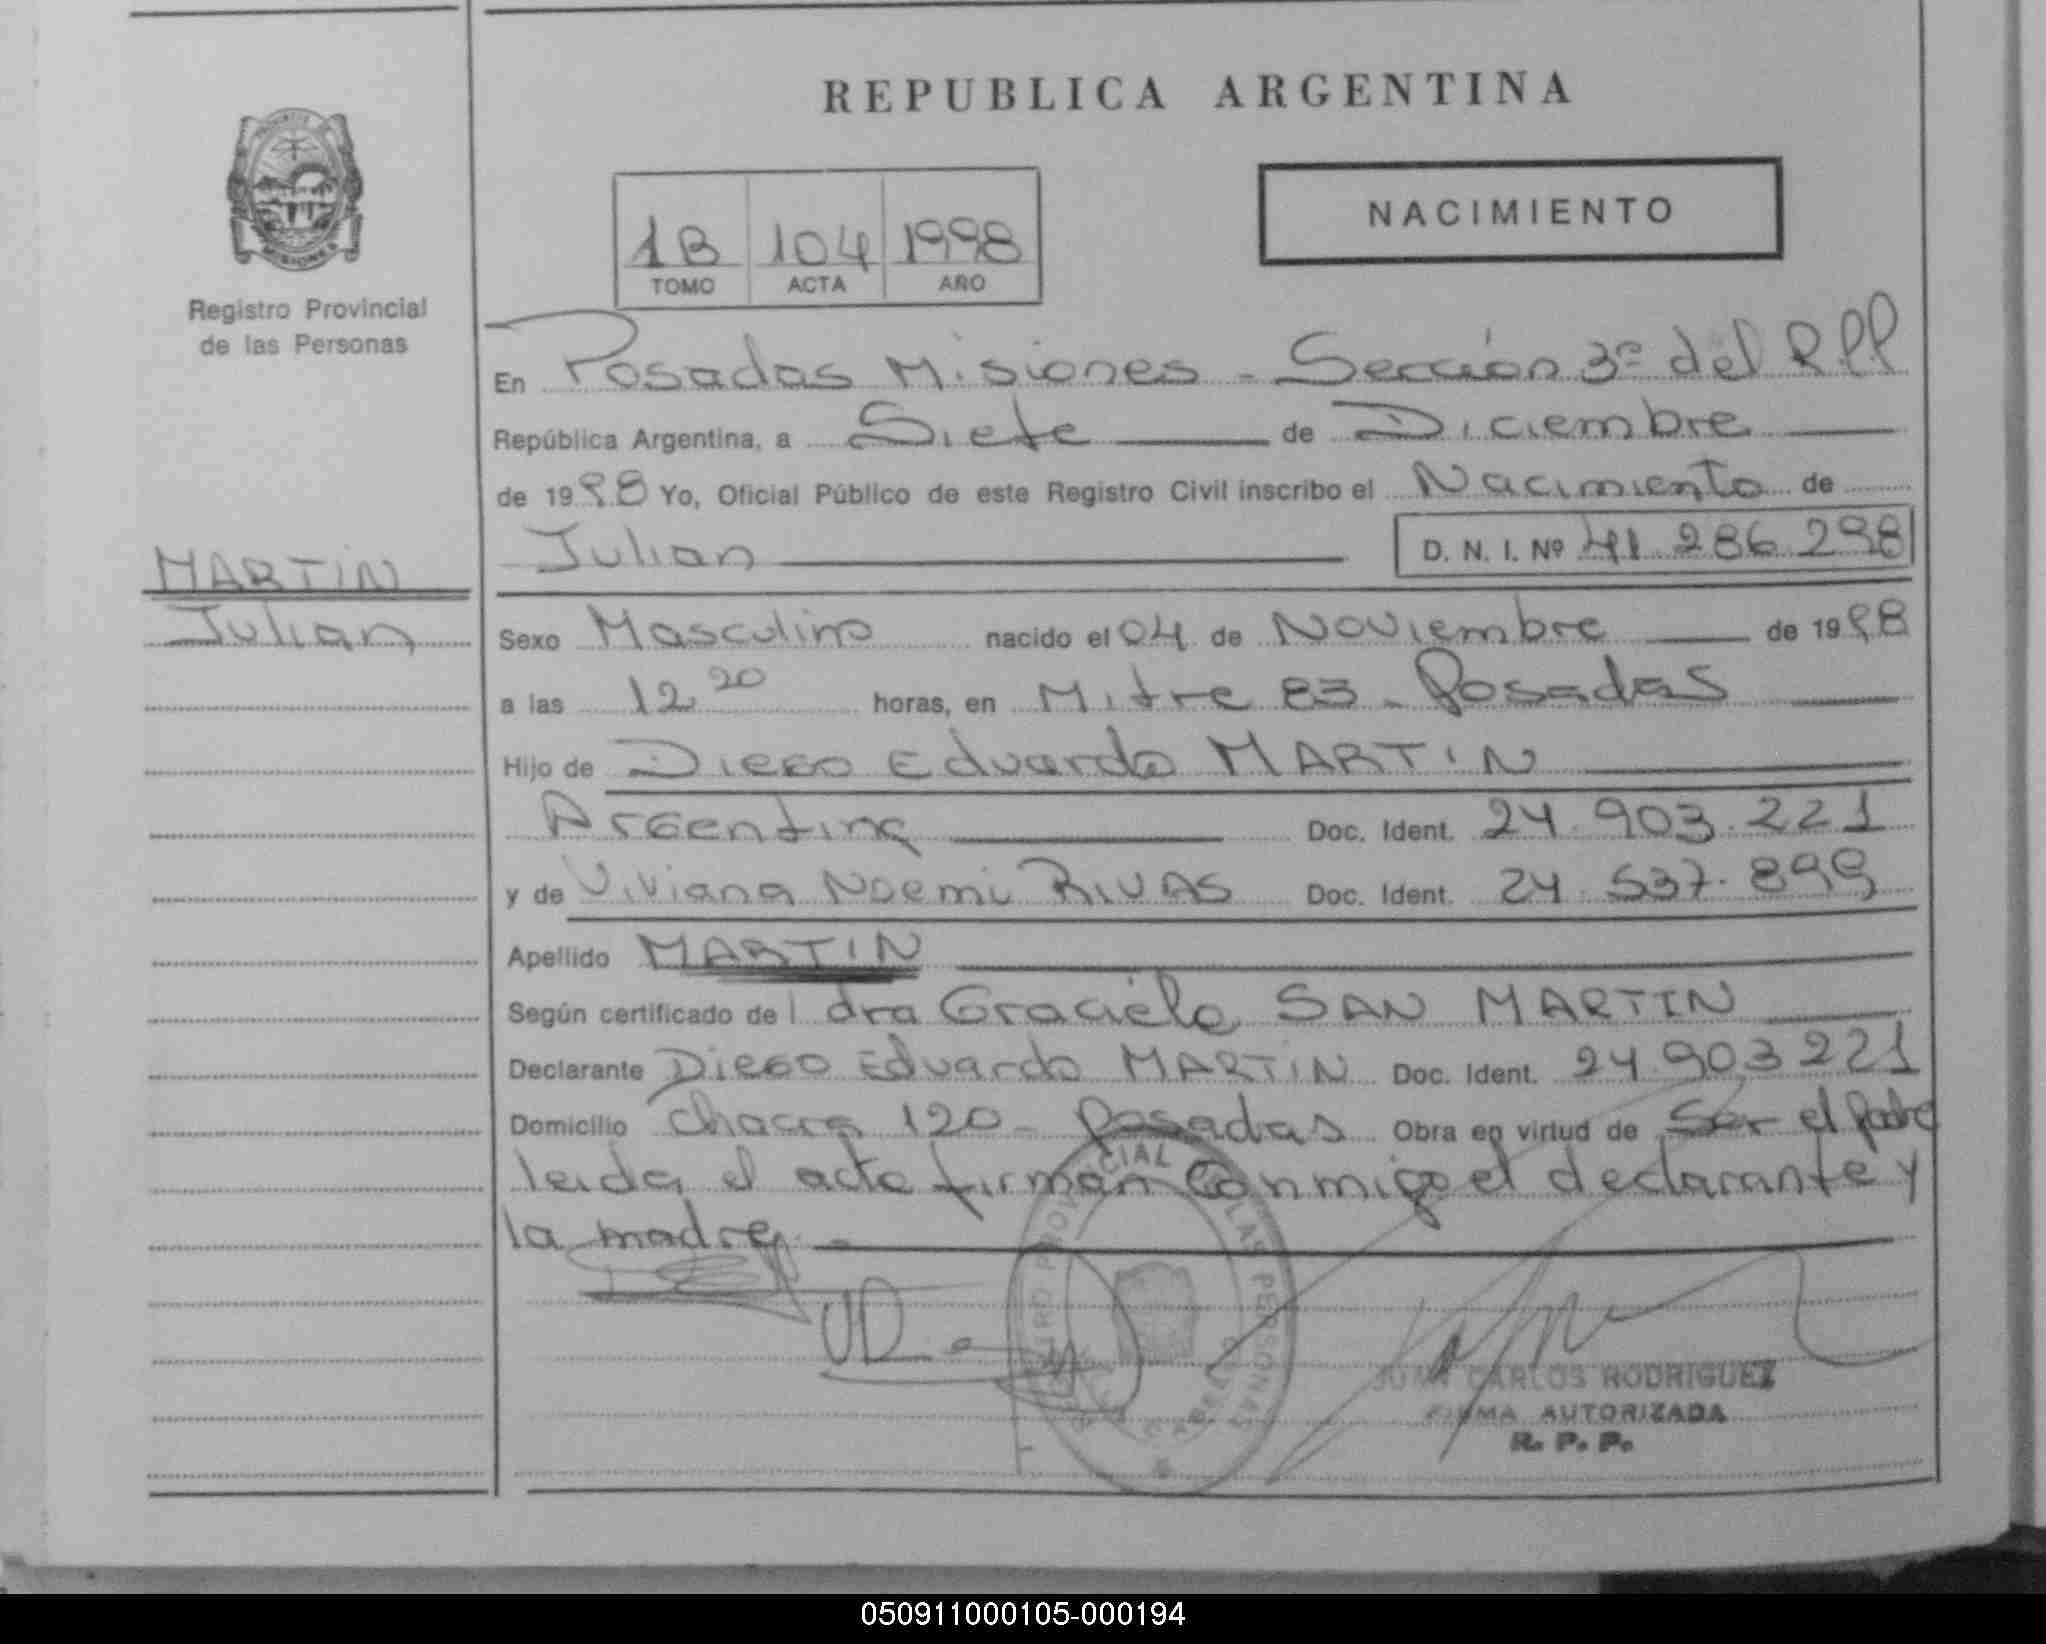 REPUBLICA ARGENTINA
PROVINCIA DE MISIONES
Registro Provincial
de las Personas
1B 104 1998
TOMO ACTA AÑO
NACIMIENTO
En Posadas Misiones - Sección 3ª del RPP
República Argentina, a Siete de Diciembre
de 1998 Yo, Oficial Público de este Registro Civil inscribo el Nacimiento de
Julian D. N. I. Nº 41.286.298
MARTIN
Julian
Sexo Masculino nacido el 04 de Noviembre de 1998
a las 12 20 horas, en Mitre 83 - Posadas
Hijo de Diego Eduardo MARTIN
Argentina Doc. Ident. 24.903.221
y de Viviana Noemi RIVAS Doc. Ident. 24.537.899
Apellido MARTIN
Según certificado de l dra Graciela SAN MARTIN
Declarante Diego Eduardo MARTIN Doc. Ident. 24.903.221
Domicilio Chacra 120 - Posadas Obra en virtud de Ser el padre
leida el acta firman conmigo el declarante y
la madre. -
REGISTRO PROVINCIAL DE LAS PERSONAS
JUAN CARLOS RODRIGUEZ
FIRMA AUTORIZADA
R. P. P.
050911000105-000194